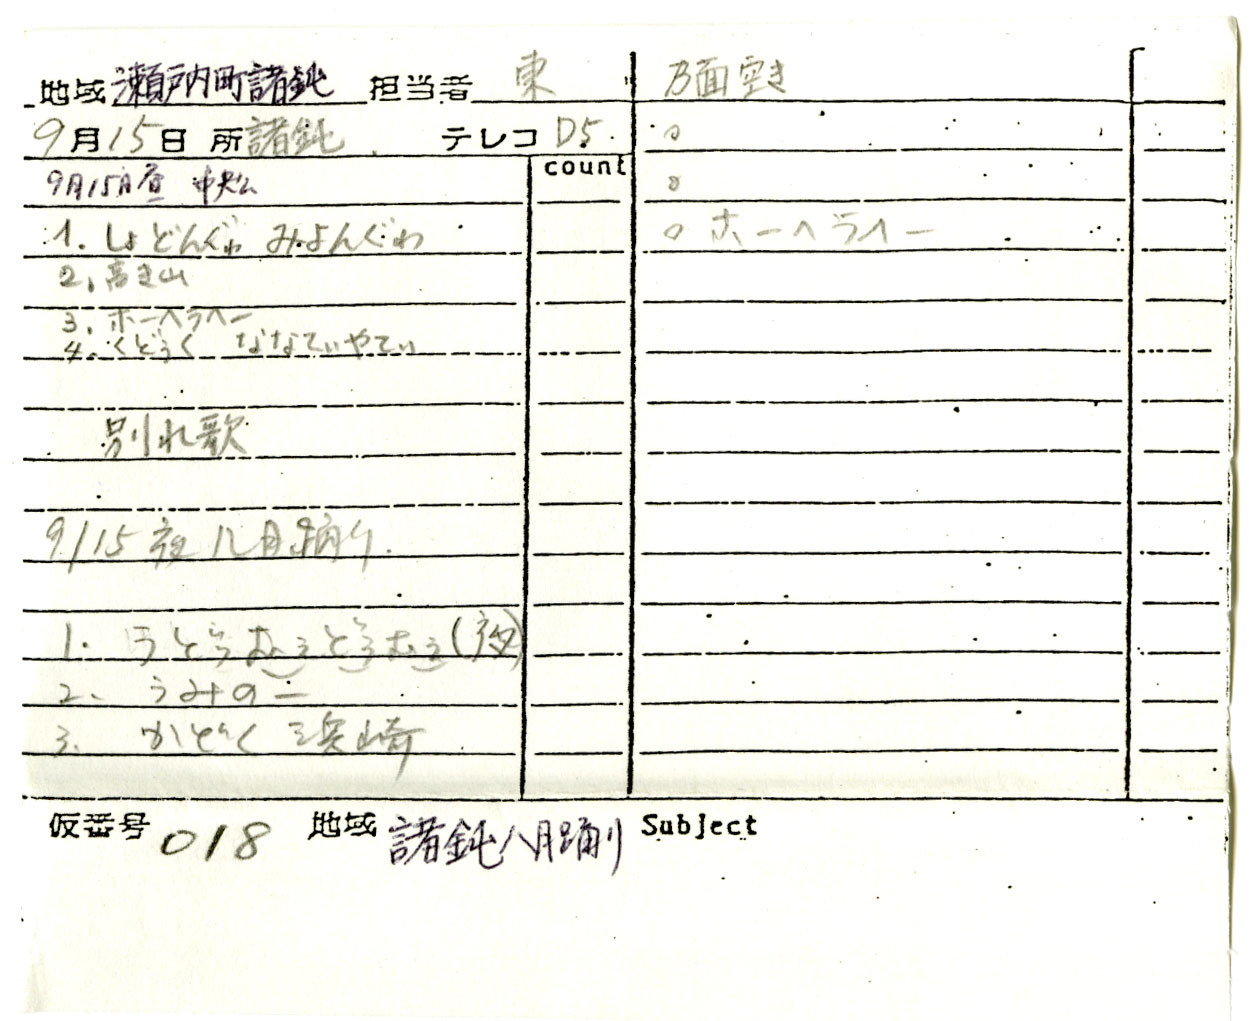 地域 瀬戸内町諸鈍 担当者 東
9月15日 所 諸鈍 テレコ D5
count
9月15日昼 中央公
1. しょどんぐゎ みよんぐゎ
2. 高き山
3. ホーヘラヘー
4. くどぅく ななてぃやてぃ
別れ歌
9/15 夜 八月踊り
1.
2. うみの一
3. かどく 浜崎
B面空き
○
○
○ ホーヘラヘー
仮番号 018 地域 諸鈍八月踊り Subject